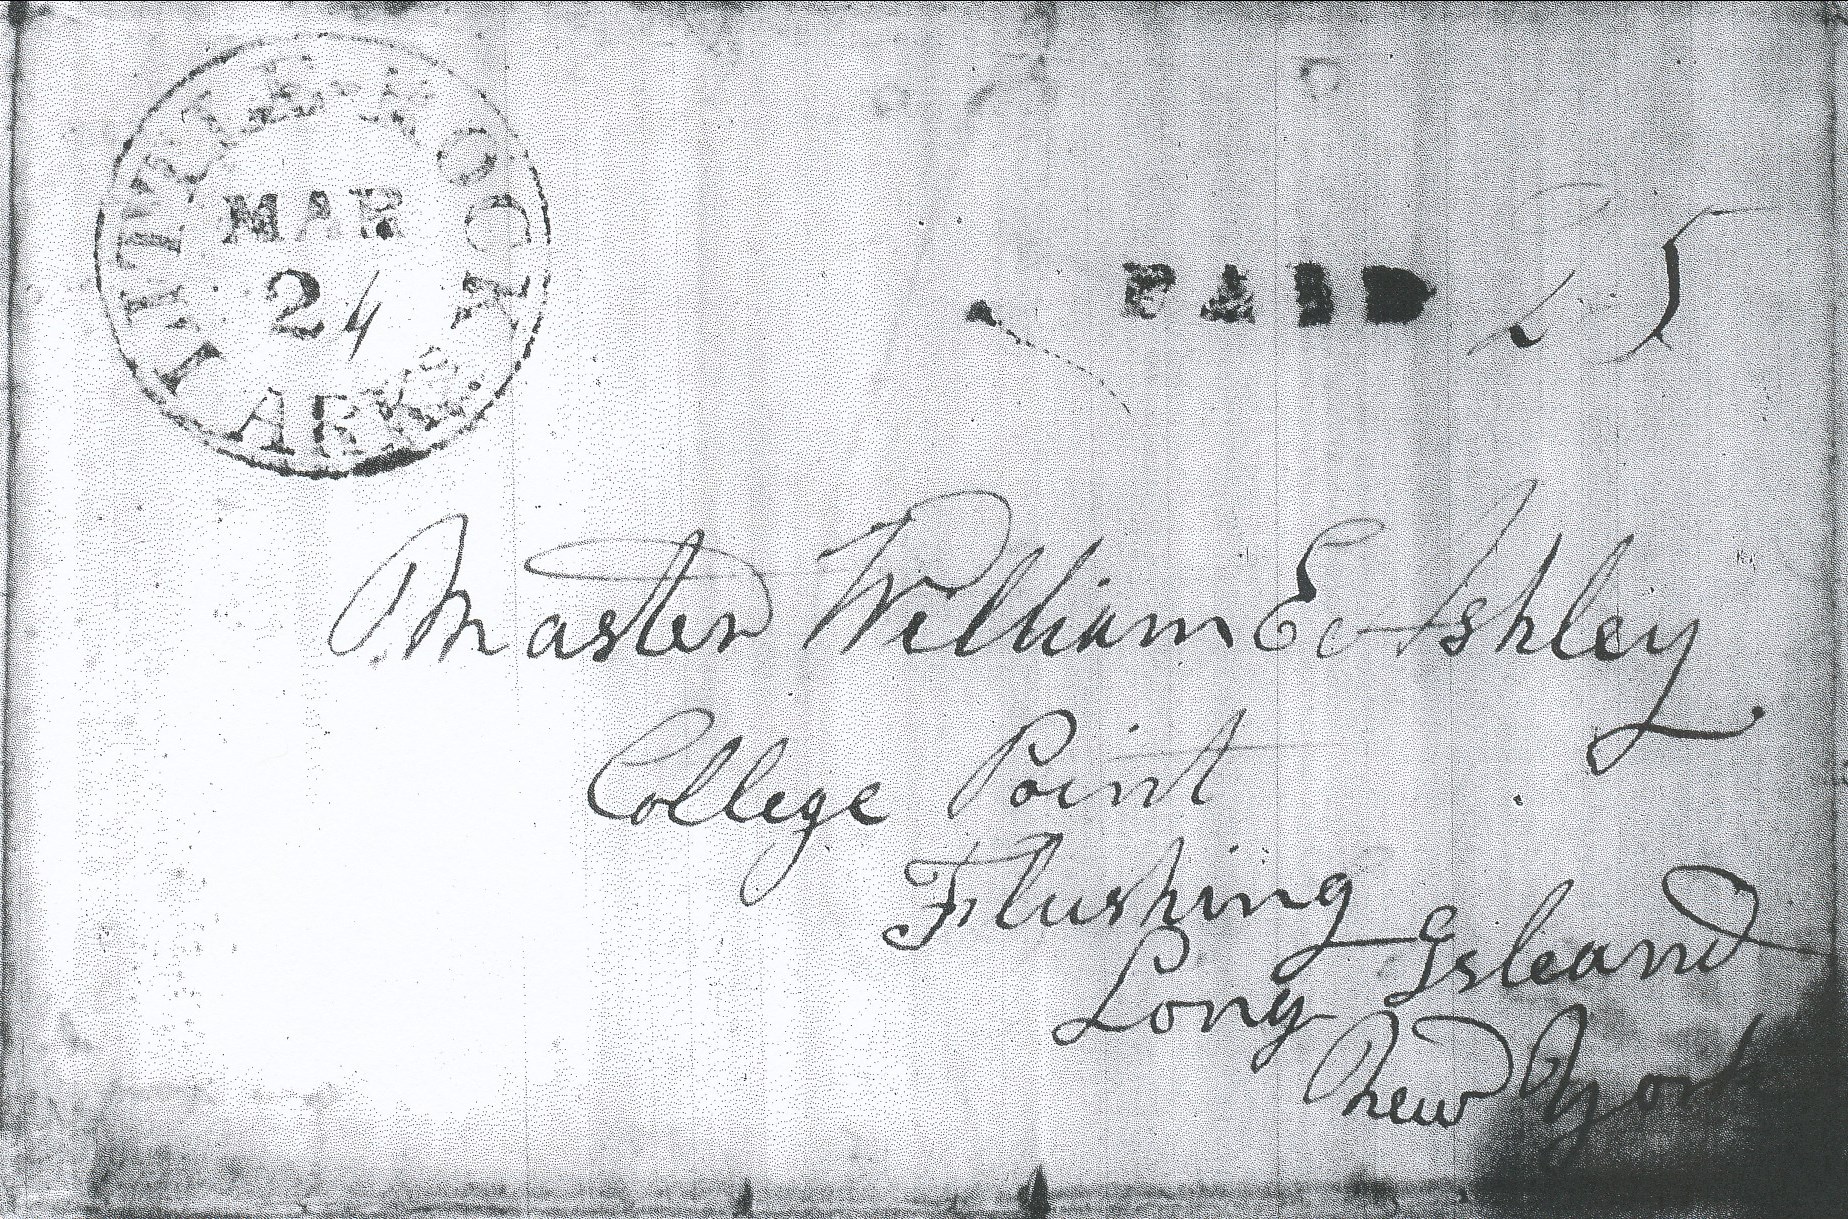 LITTLE-ROCK
ARKS.
MAR
24
PAID 25
Master William E Ashley
College Point
Flushing
Long Island
New York